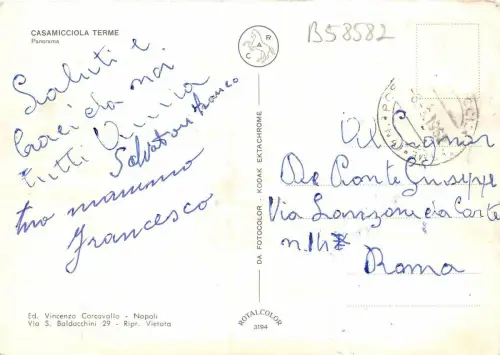 CASAMICCIOLA TERME
Panorama
C A R
B58582
Saluti e
baci da noi
tutti
Salvatore Franco
tuo mammo
Francesco
Al Signor
De Conte Giuseppe
Via Lanzone da Corte
n. 14
Roma
DA FOTOCOLOR - KODAK EKTACHROME
ROTALCOLOR
3194
Ed. Vincenzo Carcavallo - Napoli
Via S. Baldacchini 29 - Ripr. Vietata